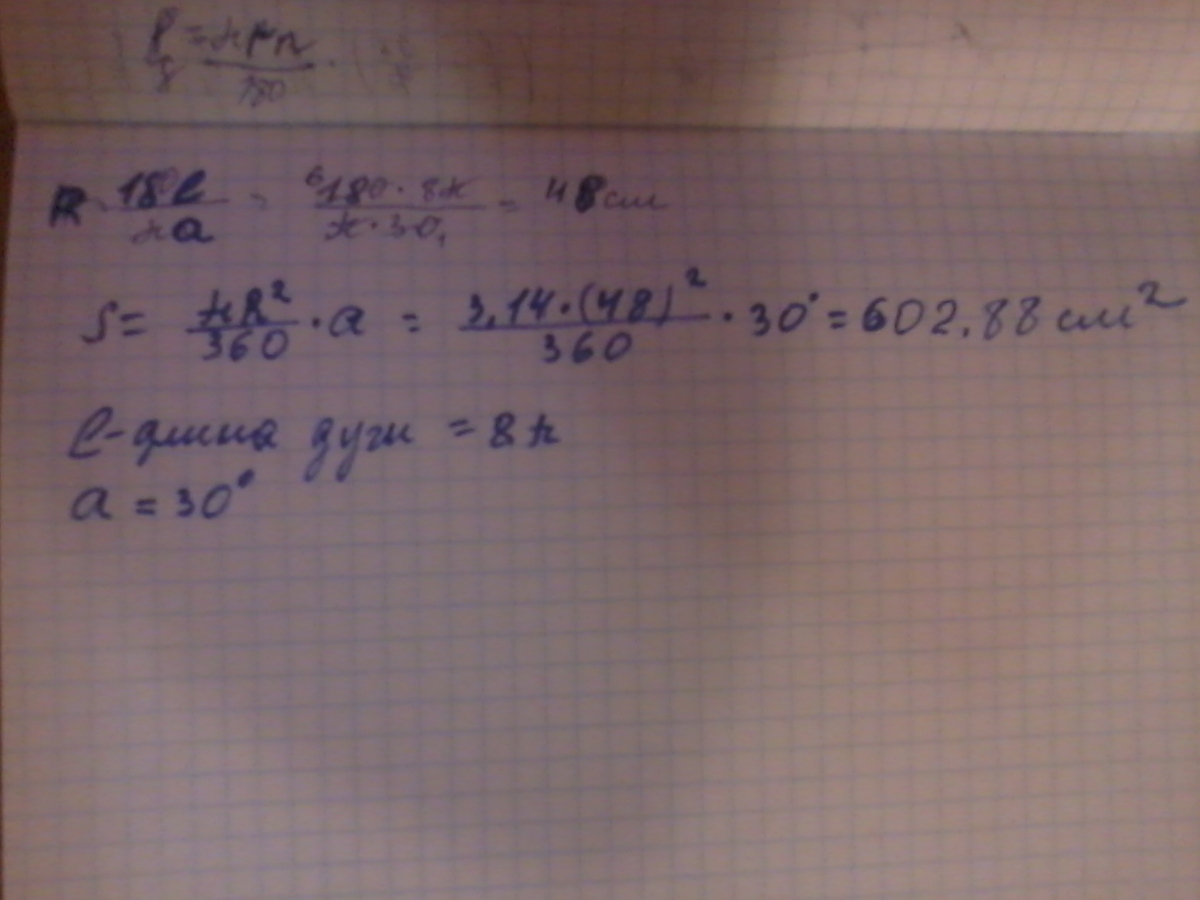 l = πrn / 180
R = 180l / πa = 180·8π / π·30 = 48 см
S = πR² / 360 · a = 3,14·(48)² / 360 · 30° = 602.88 см²
l-длина дуги = 8π
a = 30°